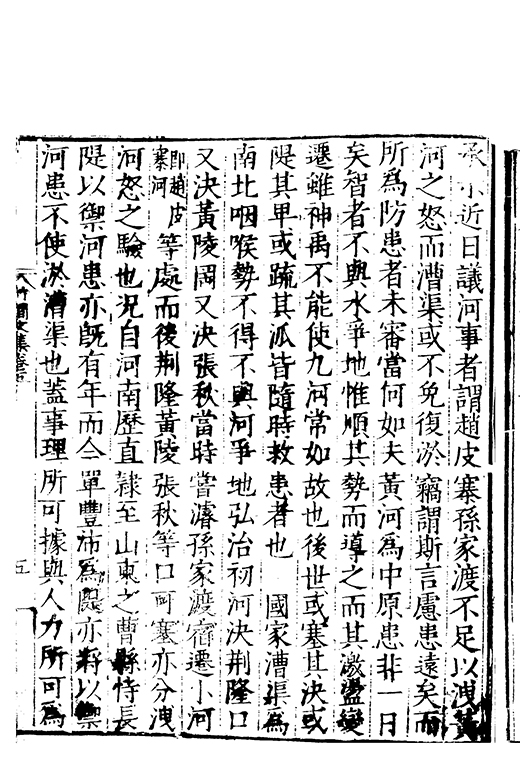 承小近日議河事者謂趙皮寨孫家渡不足以洩黃
河之怒而漕渠或不免復淤竊謂斯言慮患遠矣而
所為防患者未審當何如夫黃河為中原患非一日
矣智者不與水爭地惟順其勢而導之而其激盪變
遷雖神禹不能使九河常如故也後世或塞其決或
隄其卑或疏其派皆隨時救患者也　國家漕渠為
南北咽喉勢不得不與河爭地弘治初河決荆隆口
又決黃陵岡又決張秋當時嘗濬孫家渡宿遷小河
即趙皮寨河等處而後荆隆黃陵張秋等口可塞亦分洩
河怒之驗也況自河南歷直隸至山東之曹縣恃長
隄以禦河患亦旣有年而今單豐沛為隄亦將以禦
河患不使淤漕渠也蓋事理所可據與人力所可為
文集卷
五